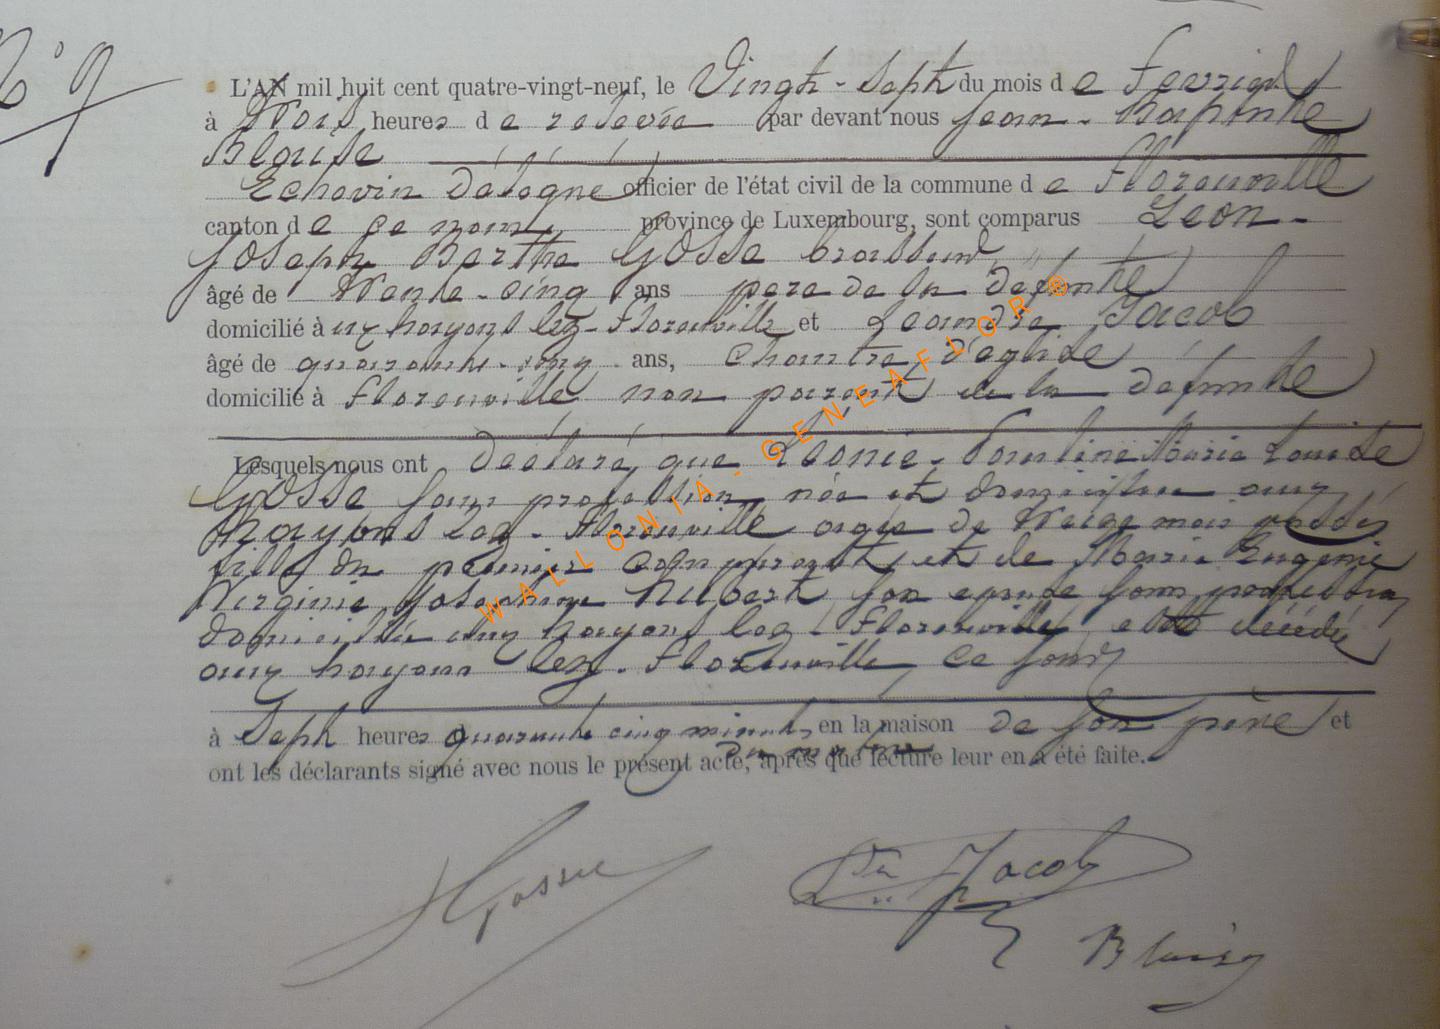 N° 9
L'AN mil huit cent quatre-vingt-neuf, le Vingt-Sept du mois de Fevrier
à trois heures de relevée par devant nous Jean-Baptiste
Blaise
Echevin délégué officier de l'état civil de la commune de Florenville
canton de ce nom, province de Luxembourg, sont comparus Léon-
Joseph Berthe GOSSE brasseur
âgé de trente-cinq ans père de la défunte
domicilié à aux hayons lez-Florenville et Léandre Jacob
âgé de quarante-cinq ans, chantre d'église
domicilié à Florenville non parent de la défunte
Lesquels nous ont déclaré que Léonie-Pauline Marie Louise
GOSSE sans profession, née et domiciliée aux
hayons lez-Florenville agée de treize mois
fille du premier comparant et de Marie Eugenie
Virginie Josephine Hubert son epouse sans profession
domiciliée aux hayons lez-Florenville, est décédée
aux hayons lez-Florenville ce jour
à Sept heures quarante cinq minutes en la maison de son père et
du matin
ont les déclarants signé avec nous le présent acte, après que lecture leur en a été faite.
WALLONIA-GENEAFLOR®
Gosse
Jacob
Blaise